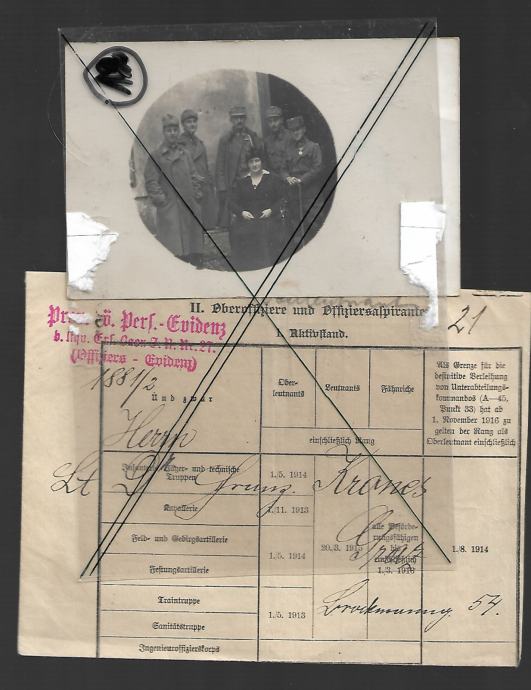 II. Oberoffiziere und Offiziersaspiranten
1. Aktivstand.
21
ö. Pers.-Evidenz
(Offiziers-Evidenz)
1881/2
Und zwar
Ober-
leutnants
Leutnants
Fähnriche
Als Grenze für die
definitive Verleihung
von Unterabteilungs-
kommandos (A—45,
Punkt 33) hat ab
1. November 1916 zu
gelten der Rang als
Oberleutnant einschließlich
einschließlich Rang
Herrn
Lt Dr Franz Krones
Infanterie-, Jäger- und technische
Truppen
1./5. 1914
Kavallerie
1./11. 1913
Feld- und Gebirgsartillerie
Festungsartillerie
1./5. 1914
20./3. 1915
alle Beförde-
rungsfähigen
einschließlich
1./3. 1916
1./8. 1914
Graz
Traintruppe
Sanitätstruppe
1./5. 1913
Brockmanng. 54.
Ingenieuroffizierskorps